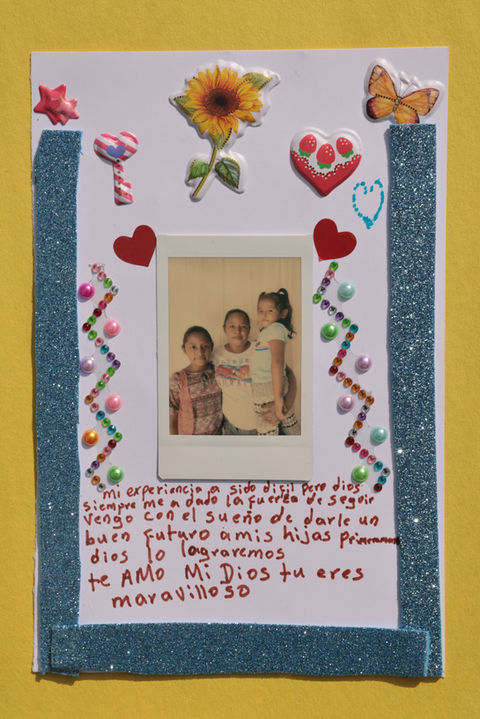 mi experiencia a sido dificil pero dios
siempre me a dado la fuerza de seguir
vengo con el sueño de darle un
buen futuro a mis hijas primeramen
dios lo lograremos
te AMO Mi Dios tu eres
maravilloso